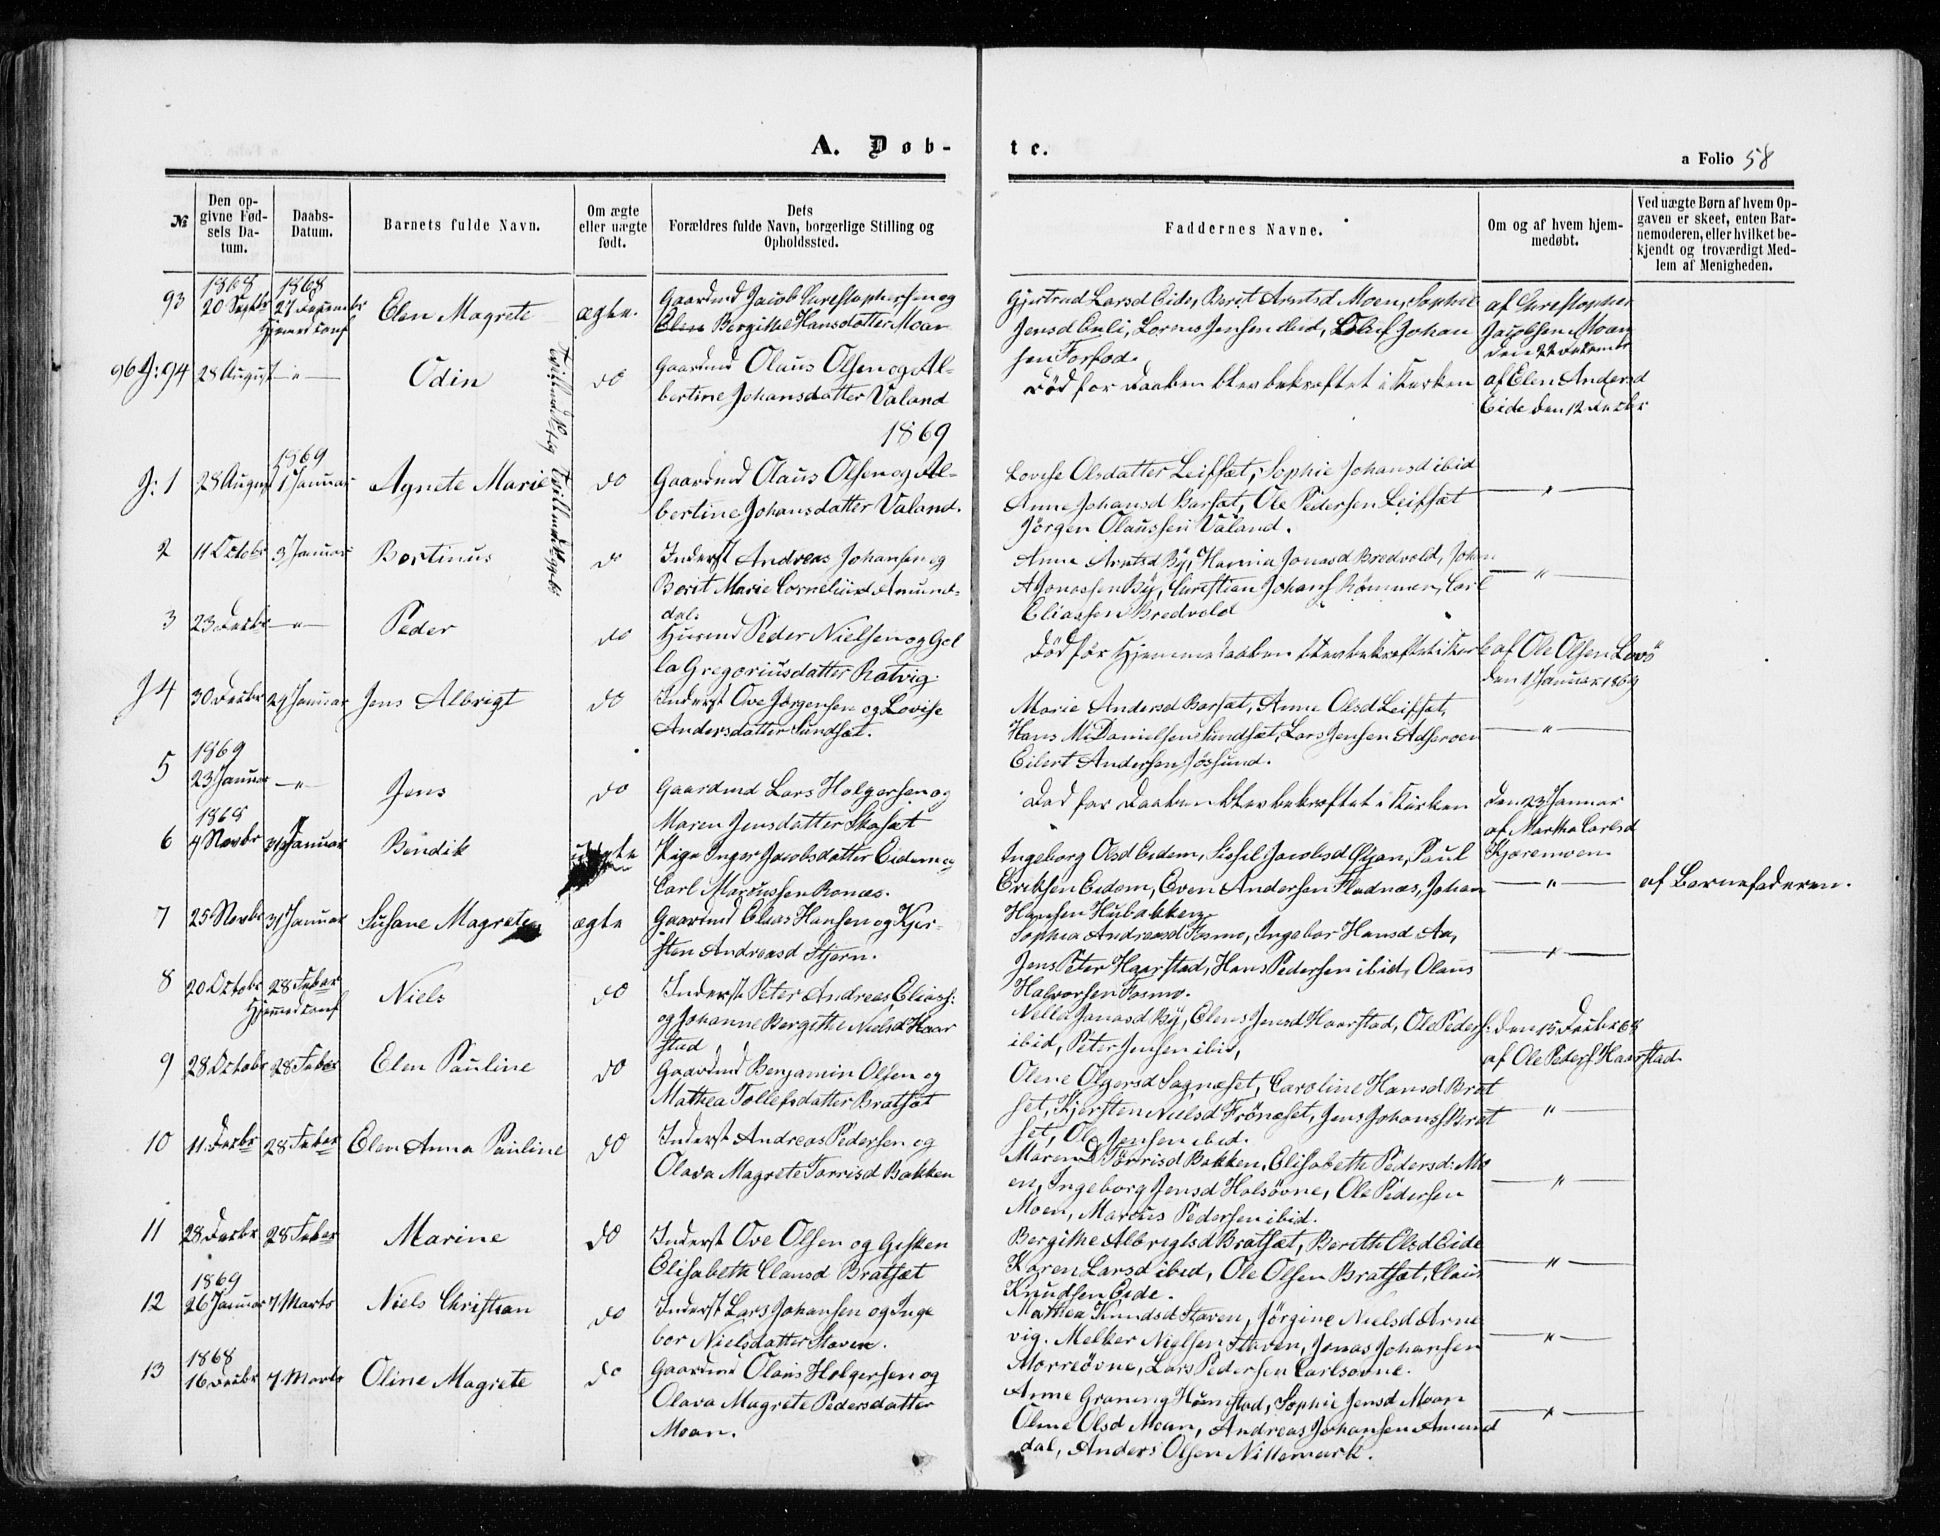 A. Døb-
te.
a Folio 58
№
Den op-
givne Fød-
sels Da-
tum.
Daabs-
Datum.
Barnets fulde Navn.
Om ægte
eller uægte
født.
Dets
Forældres fulde Navn, borgerlige Stilling og
Opholdssted.
Faddernes Navne.
Om og af hvem hjem-
medøbt.
Ved uægte Børn af hvem Op-
gaven er skeet, enten Bar-
nemoderen, eller hvilket be-
kjendt og troværdigt Med-
lem af Menigheden.
1868 1868
93 20 Septbr 27 Decembr Elen Magrete ægte.
Gaardmd Jacob Christophersen og
Elen Bergithe Hansdatter Moan
Gjertrud Larsd Eide, Berit Arntsd Moen, Sophie
Jensd, Lorns Jensen ibid, Oluf Johan
sen
af Christopher
Jacobsen Moan
den 22 December
94 28 August —"— Odin do
Gaardmd Olaus Olsen og Al-
bertine Johansdatter Valand
Død før Daaben blev bekræftet i Kirken
af Elen Andersd
Eide den 12 Decbr
1869
1869
J: 1 28 August 1 Januar Agnete Marie do
Gaardmd Olaus Olsen og Al-
bertine Johansdatter Valand.
Lovise Olsdatter Leifsæt, Sophie Johansd ibid
Anne Johansd Barsæt, Ole Pedersen Leifsæt
Jørgen Olaussen Valand.
—"—
2 11 Octobr 3 Januar Bertinus do
Inderst Andreas Johansen og
Berit Marie Corneliusd Amund-
dal.
Anne Arntsd By, Hanna Jonasd Bredvold, Johan
A Jonassen By, Christian Johans Rømmen, Carl
Eliassen Bredvold
—"—
3 23 Decbr —"— Peder do
Huusmd Peder Nielsen og Gol
la Gregoriusdatter Ratvig.
Død før Hjemmedaaben blev bekræftet i Kirke
af Ole Olsen Lovö
den 1 Januar 1869
J 4 30 Decbr 24 Januar Jens Albregt do
Inderst Ove Jørgensen og Lovise
Andersdatter Sundsæt.
Marie Andersd Barsæt, Anne Olsd Leifsæt,
Hans M. Danielsen Sundsæt, Lars Jensen
Eilert Andersen Jøssund.
—"—
1869
5 23 Januar —"— Jens do
Gaardmd Lars Holgersen og
Maren Jensdatter Skasæt
Død før Daaben blev bekræftet i Kirken
den 23 Januar
af Martha Carlsd
Kjøremoen
1868
6 4 Novbr 31 Januar Bendik uægte
Pige Inger Jacobsdatter Eidem og
Carl Marcussen Ronæs.
Ingeborg Olsd Eidem, Sissil Jacobsd Øyan, Paul
Eriksen Eidem, Even Andersen Fladnæs, Johan
Hansen Hubakken
—"—
af Barnefaderen.
7 25 Novbr 31 Januar Susane Magrete ægte
Gaardmd Elias Hansen og Kjer-
sten Andreasd Stjern.
Sophia Andreasd Fosmo, Ingebor Hansd Aa,
Jens Peter Haarstad, Hans Pedersen ibid, Olaus
Halvorsen Fosmo.
—"—
8 20 Octobr 28 Feber Niels do
Hjemmed conf
Inderst Peter Andreas Eliass:
og Johanne Bergithe Nielsd Haar
stad
Nella Jonasd By, Elens Jensd Haarstad, Ole Peders:
ibid, Peter Jensen ibid,
den 15 Decbr 68
af Ole Peders Haarstad
9 28 Octobr 28 Feber Elen Pauline do
Gaardmd Benjamin Olsen og
Mathea Tollefsdatter Bratsæt
Olene Olgersd Sagnæset, Caroline Hansd Brat
set, Kjersten Nielsd Frönæset, Jens Johans Brat
set, Ole Jensen ibid.
"
10 11 Decbr 28 Feber Elen Anna Pauline do
Inderst Andreas Pedersen og
Olava Magrete Torrisd Bakken
Maren D Torrisd Bakken, Elisabeth Pedersd: Mo
en, Ingeborg Jensd Halsövne, Ole Pedersen
Moen, Marcus Pedersen ibid.
—"—
11 28 Decbr 28 Feber Marine do
Inderst Ove Olsen og Gisken
Elisabeth Clausd Bratsæt
Bergithe Albregtsd Bratsæt, Berith Olsd Eide
Karen Larsd ibid, Ole Olsen Bratsæt, Claus
Knudsen Eide.
—"—
1869
12 26 Januar 7 Marts Niels Christian do
Inderst Lars Johansen og Inge
bor Nielsdatter Staven.
Mathea Knudsd Staven, Jörgine Nielsd Arne
vig. Melker Nielsen Staven, Jonas Johansen
Morreövne, Lars Pedersen Carlsövne.
—"—
1868
13 16 Decbr 7 Marts Oline Magrete do
Gaardmd Olaus Holgersen og
Olava Magrete Pedersdatter
Moan.
Anne Graning Harstad, Sophie Jensd Moan
Oline Olsd Moan, Andreas Johansen Amund
dal, Anders Olsen Nittemark.
—"—